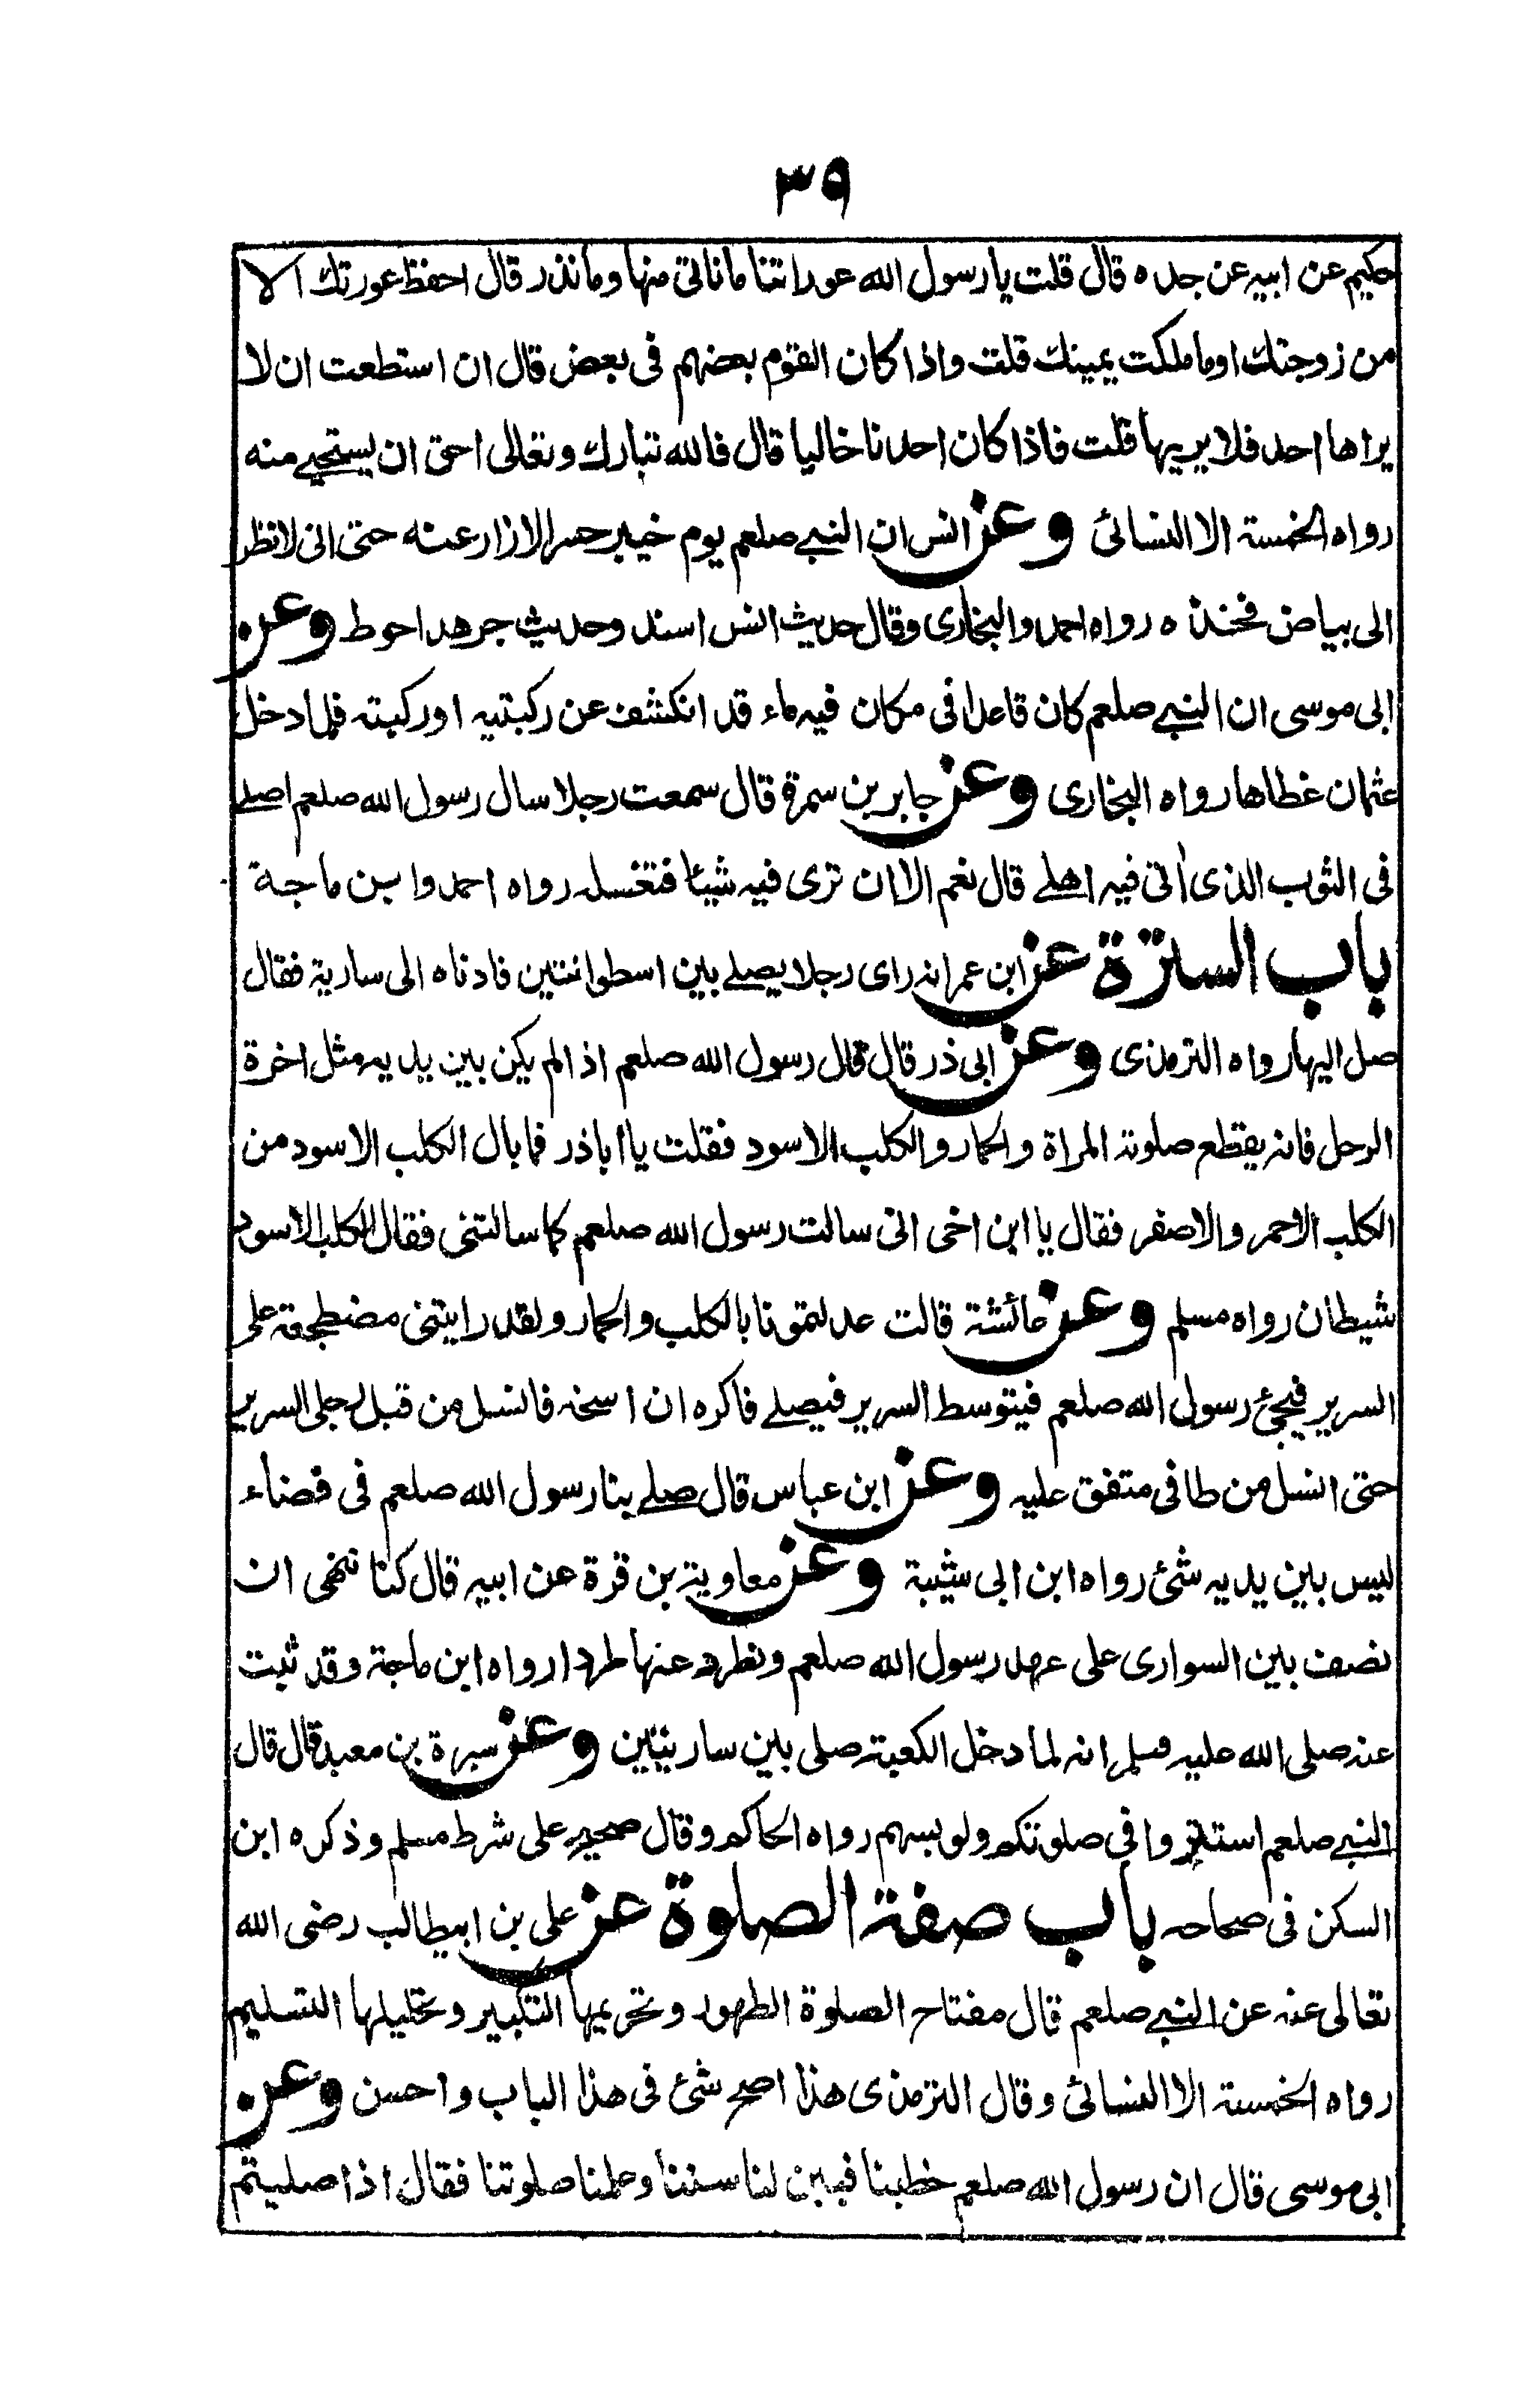 ٣٩
حكيم عن ابيه عن جده قال قلت يا رسول الله عوراتنا ما ناتى منها وما نذر قال احفظ عورتك الا
من زوجتك او ما ملكت يمينك قلت واذا كان القوم بعضهم فى بعض قال ان استطعت ان لا
يراها احد فلا يريها قلت فاذا كان احدنا خاليا قال فالله تبارك وتعالى احق ان يستحيى منه
رواه الخمسة الا النسائى وعن انس ان النبى صلعم يوم خيبر حسر الازار عنه حتى انى لانظر
الى بياض فخذه رواه احمد والبخارى وقال حديث انس اسند وحديث جرهد احوط وعن
ابى موسى ان النبى صلعم كان قاعدا فى مكان فيه ماء قد انكشف عن ركبتيه او ركبته فلما دخل
عثمان غطاها رواه البخارى وعن جابر بن سمرة قال سمعت رجلا سال رسول الله صلعم اصلى
فى الثوب الذى اتى فيه اهلى قال نعم الا ان ترى فيه شيئا فتغسله رواه احمد وابن ماجة
باب السترة عن ابن عمر انه راى رجلا يصلى بين اسطوانتين فادناه الى سارية فقال
صل اليها رواه الترمذى وعن ابى ذر قال قال رسول الله صلعم اذا لم يكن بين يديه مثل اخرة
الرحل فانه يقطع صلوته المراة والحمار والكلب الاسود فقلت يا اباذر فما بال الكلب الاسود من
الكلب الاحمر والاصفر فقال يا ابن اخى انى سالت رسول الله صلعم كما سالتنى فقال الكلب الاسود
شيطان رواه مسلم وعن عائشة قالت عدلتمونا بالكلب والحمار ولقد رايتنى مضطجعة على
السرير فيجئ رسول الله صلعم فيتوسط السرير فيصلى فاكره ان اسنحه فانسل من قبل رجلى السرير
حتى انسل من لحافى متفق عليه وعن ابن عباس قال صلى بنا رسول الله صلعم فى فضاء
ليس بين يديه شئ رواه ابن ابى شيبة وعن معاوية بن قرة عن ابيه قال كنا ننهى ان
نصف بين السوارى على عهد رسول الله صلعم ونطرد عنها طردا رواه ابن ماجة وقد ثبت
عنه صلى الله عليه وسلم انه لما دخل الكعبة صلى بين ساريتين وعن سبرة بن معبد قال قال
النبى صلعم استتروا فى صلوتكم ولو بسهم رواه الحاكم وقال صحيح على شرط مسلم وذكره ابن
السكن فى صحاحه باب صفة الصلوة عن على بن ابيطالب رضى الله
تعالى عنه عن النبى صلعم قال مفتاح الصلوة الطهور وتحريمها التكبير وتحليلها التسليم
رواه الخمسة الا النسائى وقال الترمذى هذا اصح شئ فى هذا الباب واحسن وعن
ابى موسى قال ان رسول الله صلعم خطبنا فبين لنا سنننا وعلمنا صلوتنا فقال اذا صليتم